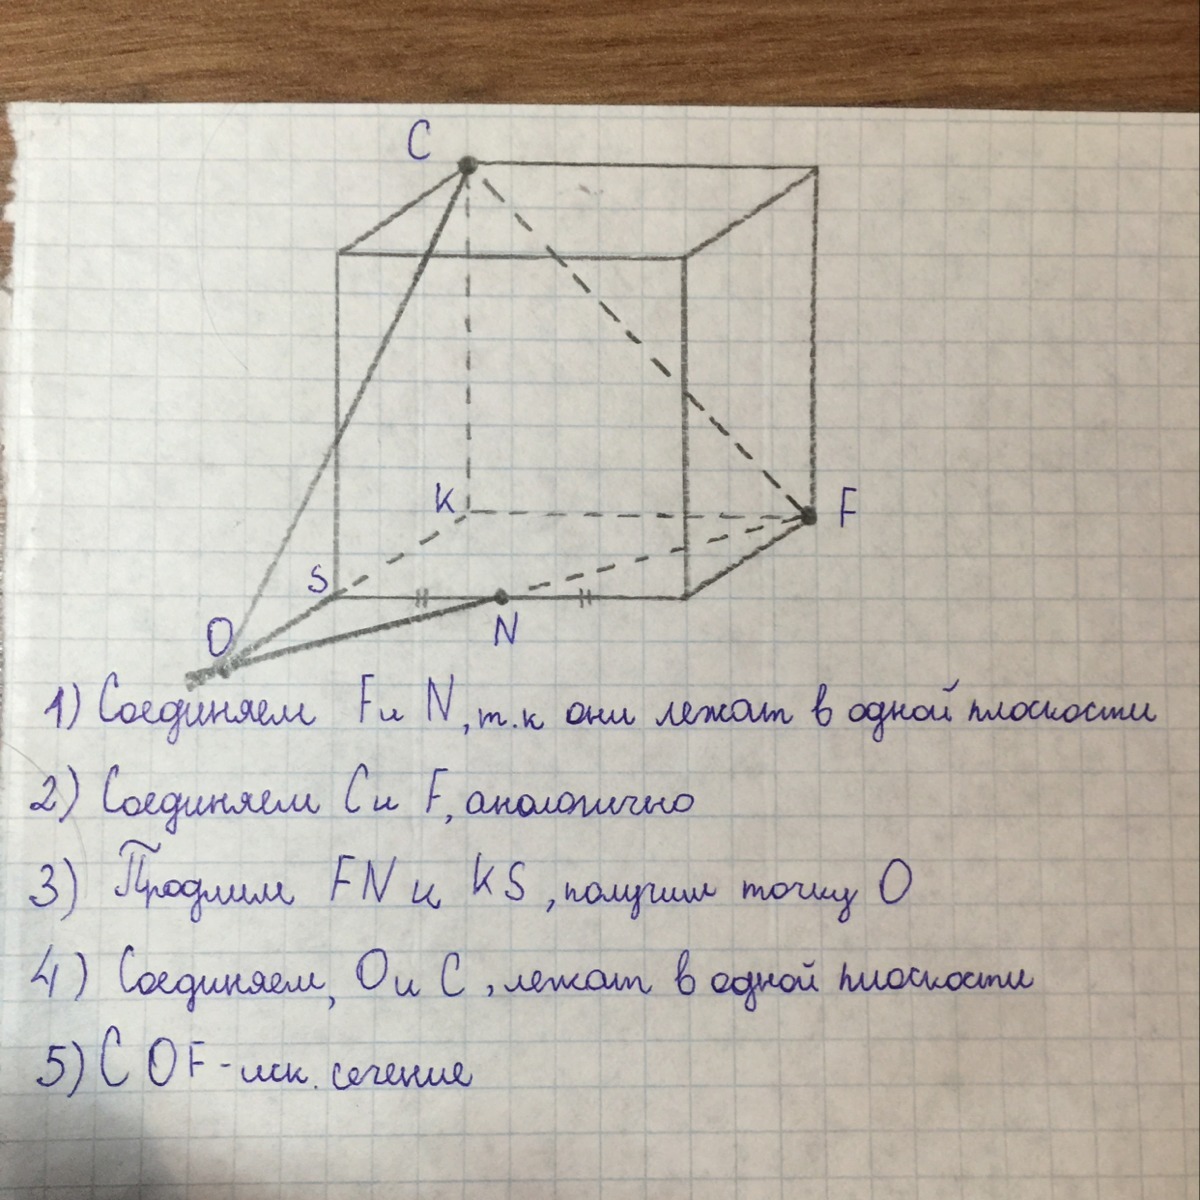 C
K
F
S
O
N
1) Соединяем F и N, т.к они лежат в одной плоскости
2) Соединяем C и F, анологично
3) Продлим FN и KS, получим точку O
4) Соединяем, O и C, лежат в одной плоскости
5) COF - иск. сечение